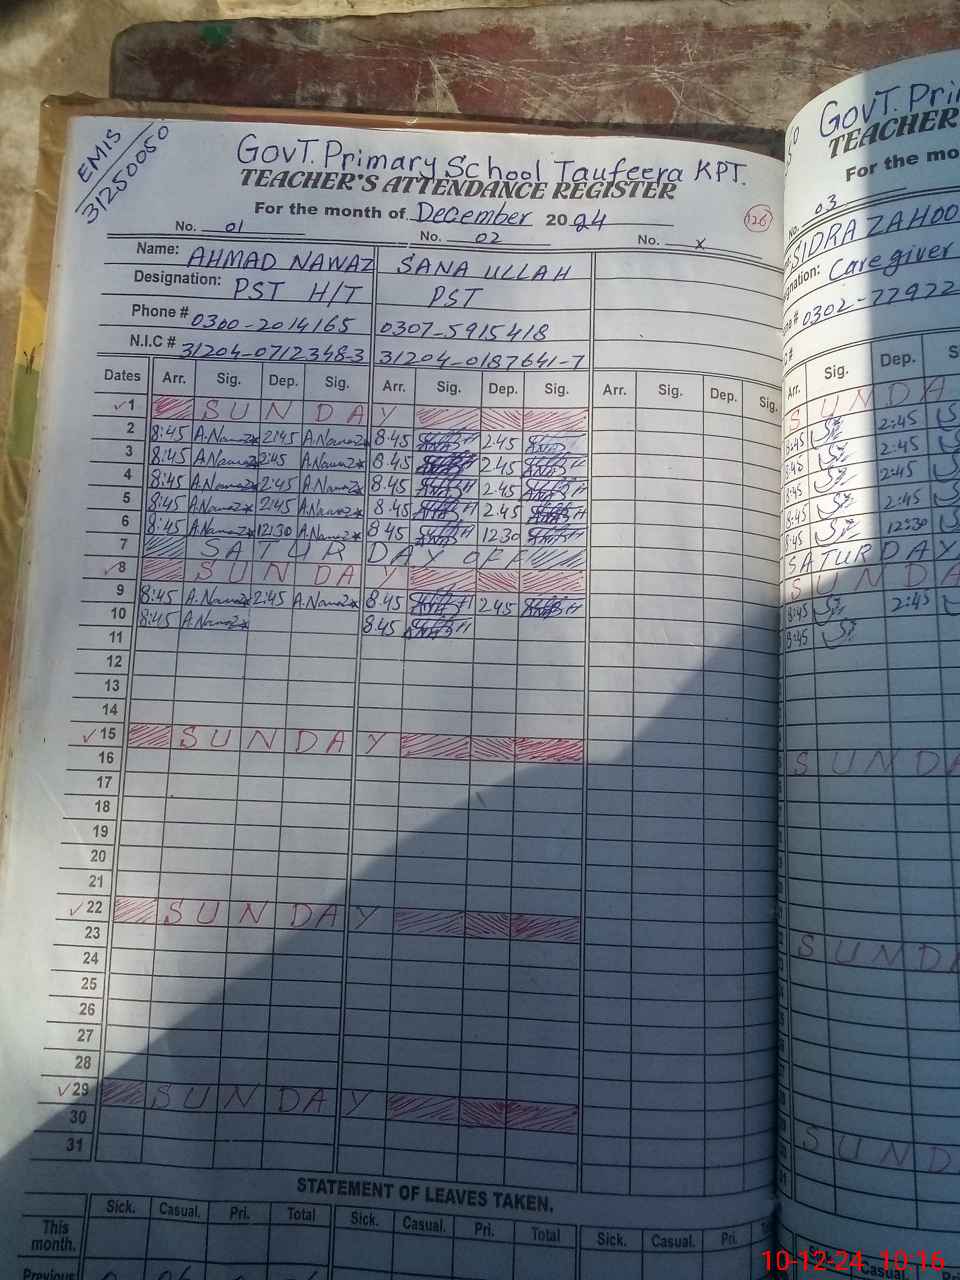 EMIS
31250050
GovT. Primary School Taufeera KPT.
TEACHER'S ATTENDANCE REGISTER
For the month of December 2024
126
No. 01 No. 02 No. x
Name: AHMAD NAWAZ SANA ULLAH
Designation: PST H/T PST
Phone # 0300-2014165 0307-5915418
N.I.C # 31204-0712348-3 31204-0187641-7
Dates Arr. Sig. Dep. Sig. Arr. Sig. Dep. Sig. Arr. Sig. Dep. Sig.
✓1 SUNDAY
2 8:45 A.Nawaz 2:45 A.Nawaz 8.45 2.45
3 8:45 A.Nawaz 2:45 A.Nawaz 8.45 2.45
4 8:45 A.Nawaz 2:45 A.Nawaz 8.45 2.45
5 8:45 A.Nawaz 2:45 A.Nawaz 8.45 2.45
6 8:45 A.Nawaz 12:30 A.Nawaz 8.45 12.30
7 SATURDAY OFF
✓8 SUNDAY
9 8:45 A.Nawaz 2:45 A.Nawaz 8.45 2.45
10 8:45 A.Nawaz 8.45
11
12
13
14
✓15 SUNDAY
16
17
18
19
20
21
✓22 SUNDAY
23
24
25
26
27
28
✓29 SUNDAY
30
31
STATEMENT OF LEAVES TAKEN.
Sick. Casual. Pri. Total Sick. Casual. Pri. Total Sick. Casual. Pri.
This
month.
Previous
GovT. Pri
TEACHER
For the mo
No. 03
SIDRA ZAHOO
Caregiver
0302-77922
Arr. Sig. Dep.
SUNDA
8:45 2:45
8:45 2:45
8:45 2:45
8:45 2:45
8:45 12:30
SATURDAY
SUNDA
8:45 2:45
8:45
SUNDA
SUNDA
SUND
Sick. Casual.
10-12-24 10:16